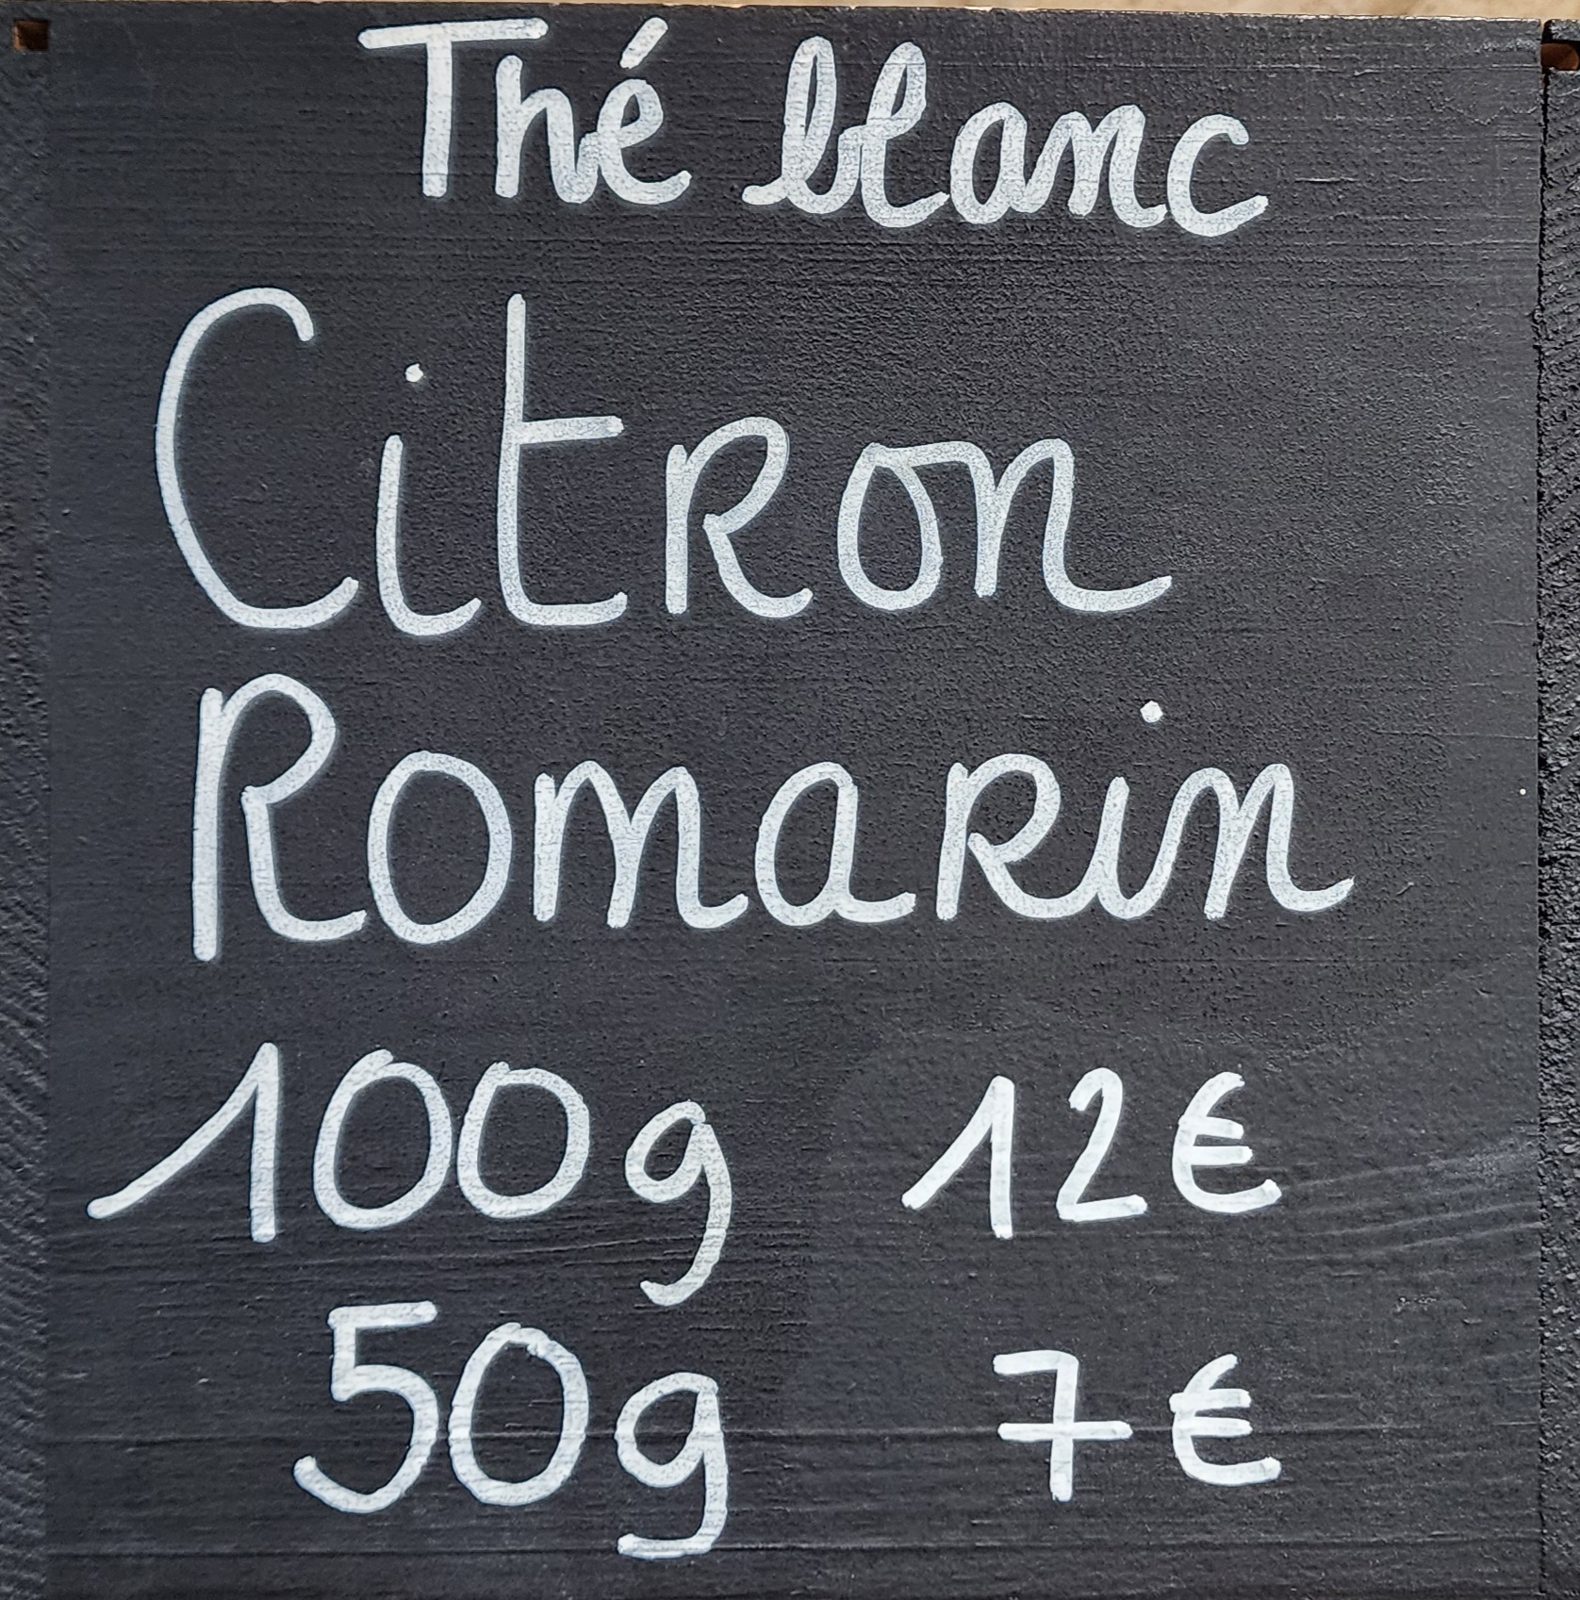 Thé blanc
Citron
Romarin
100g 12€
50g 7€